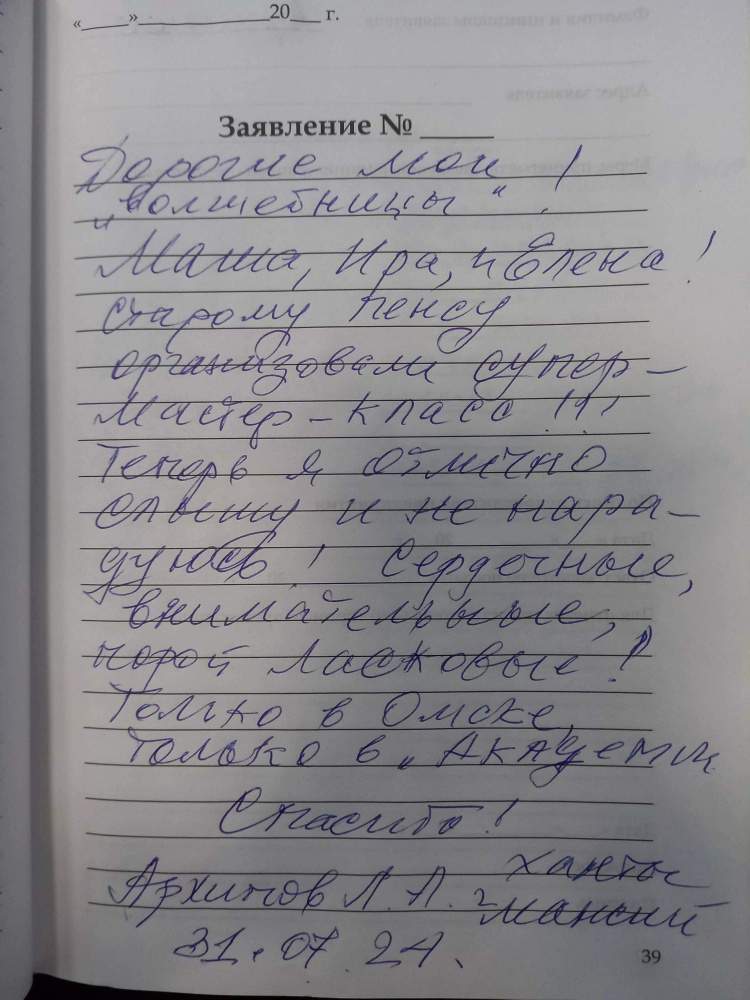 «____»____________20___ г.
Заявление № _____
Дорогие мои !
„волшебницы“ !
Маша, Ира, и Елена !
Старому пенсу
организовали супер-
мастер-класс !!!
Теперь я отлично
слышу и не нара-
дуюсь ! Сердечные,
внимательные,
порой ласковые !
Только в Омске,
только в „Академии
Спасибо !
Архипов Л. П. г. Ханты
Мансий
31.07.24.
39